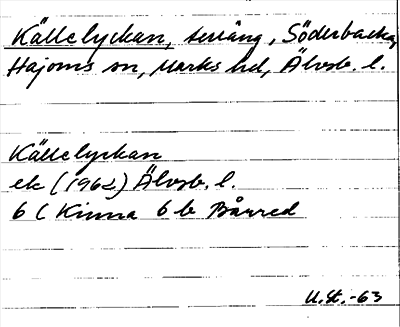 Källelyckan, terräng, Söderbacka,
Hajoms sn, Marks hd, Älvsb. l.
Källelyckan
ek (1962) Älvsb. l.
6 C Kinna 6 b Bånred
U.St.-63